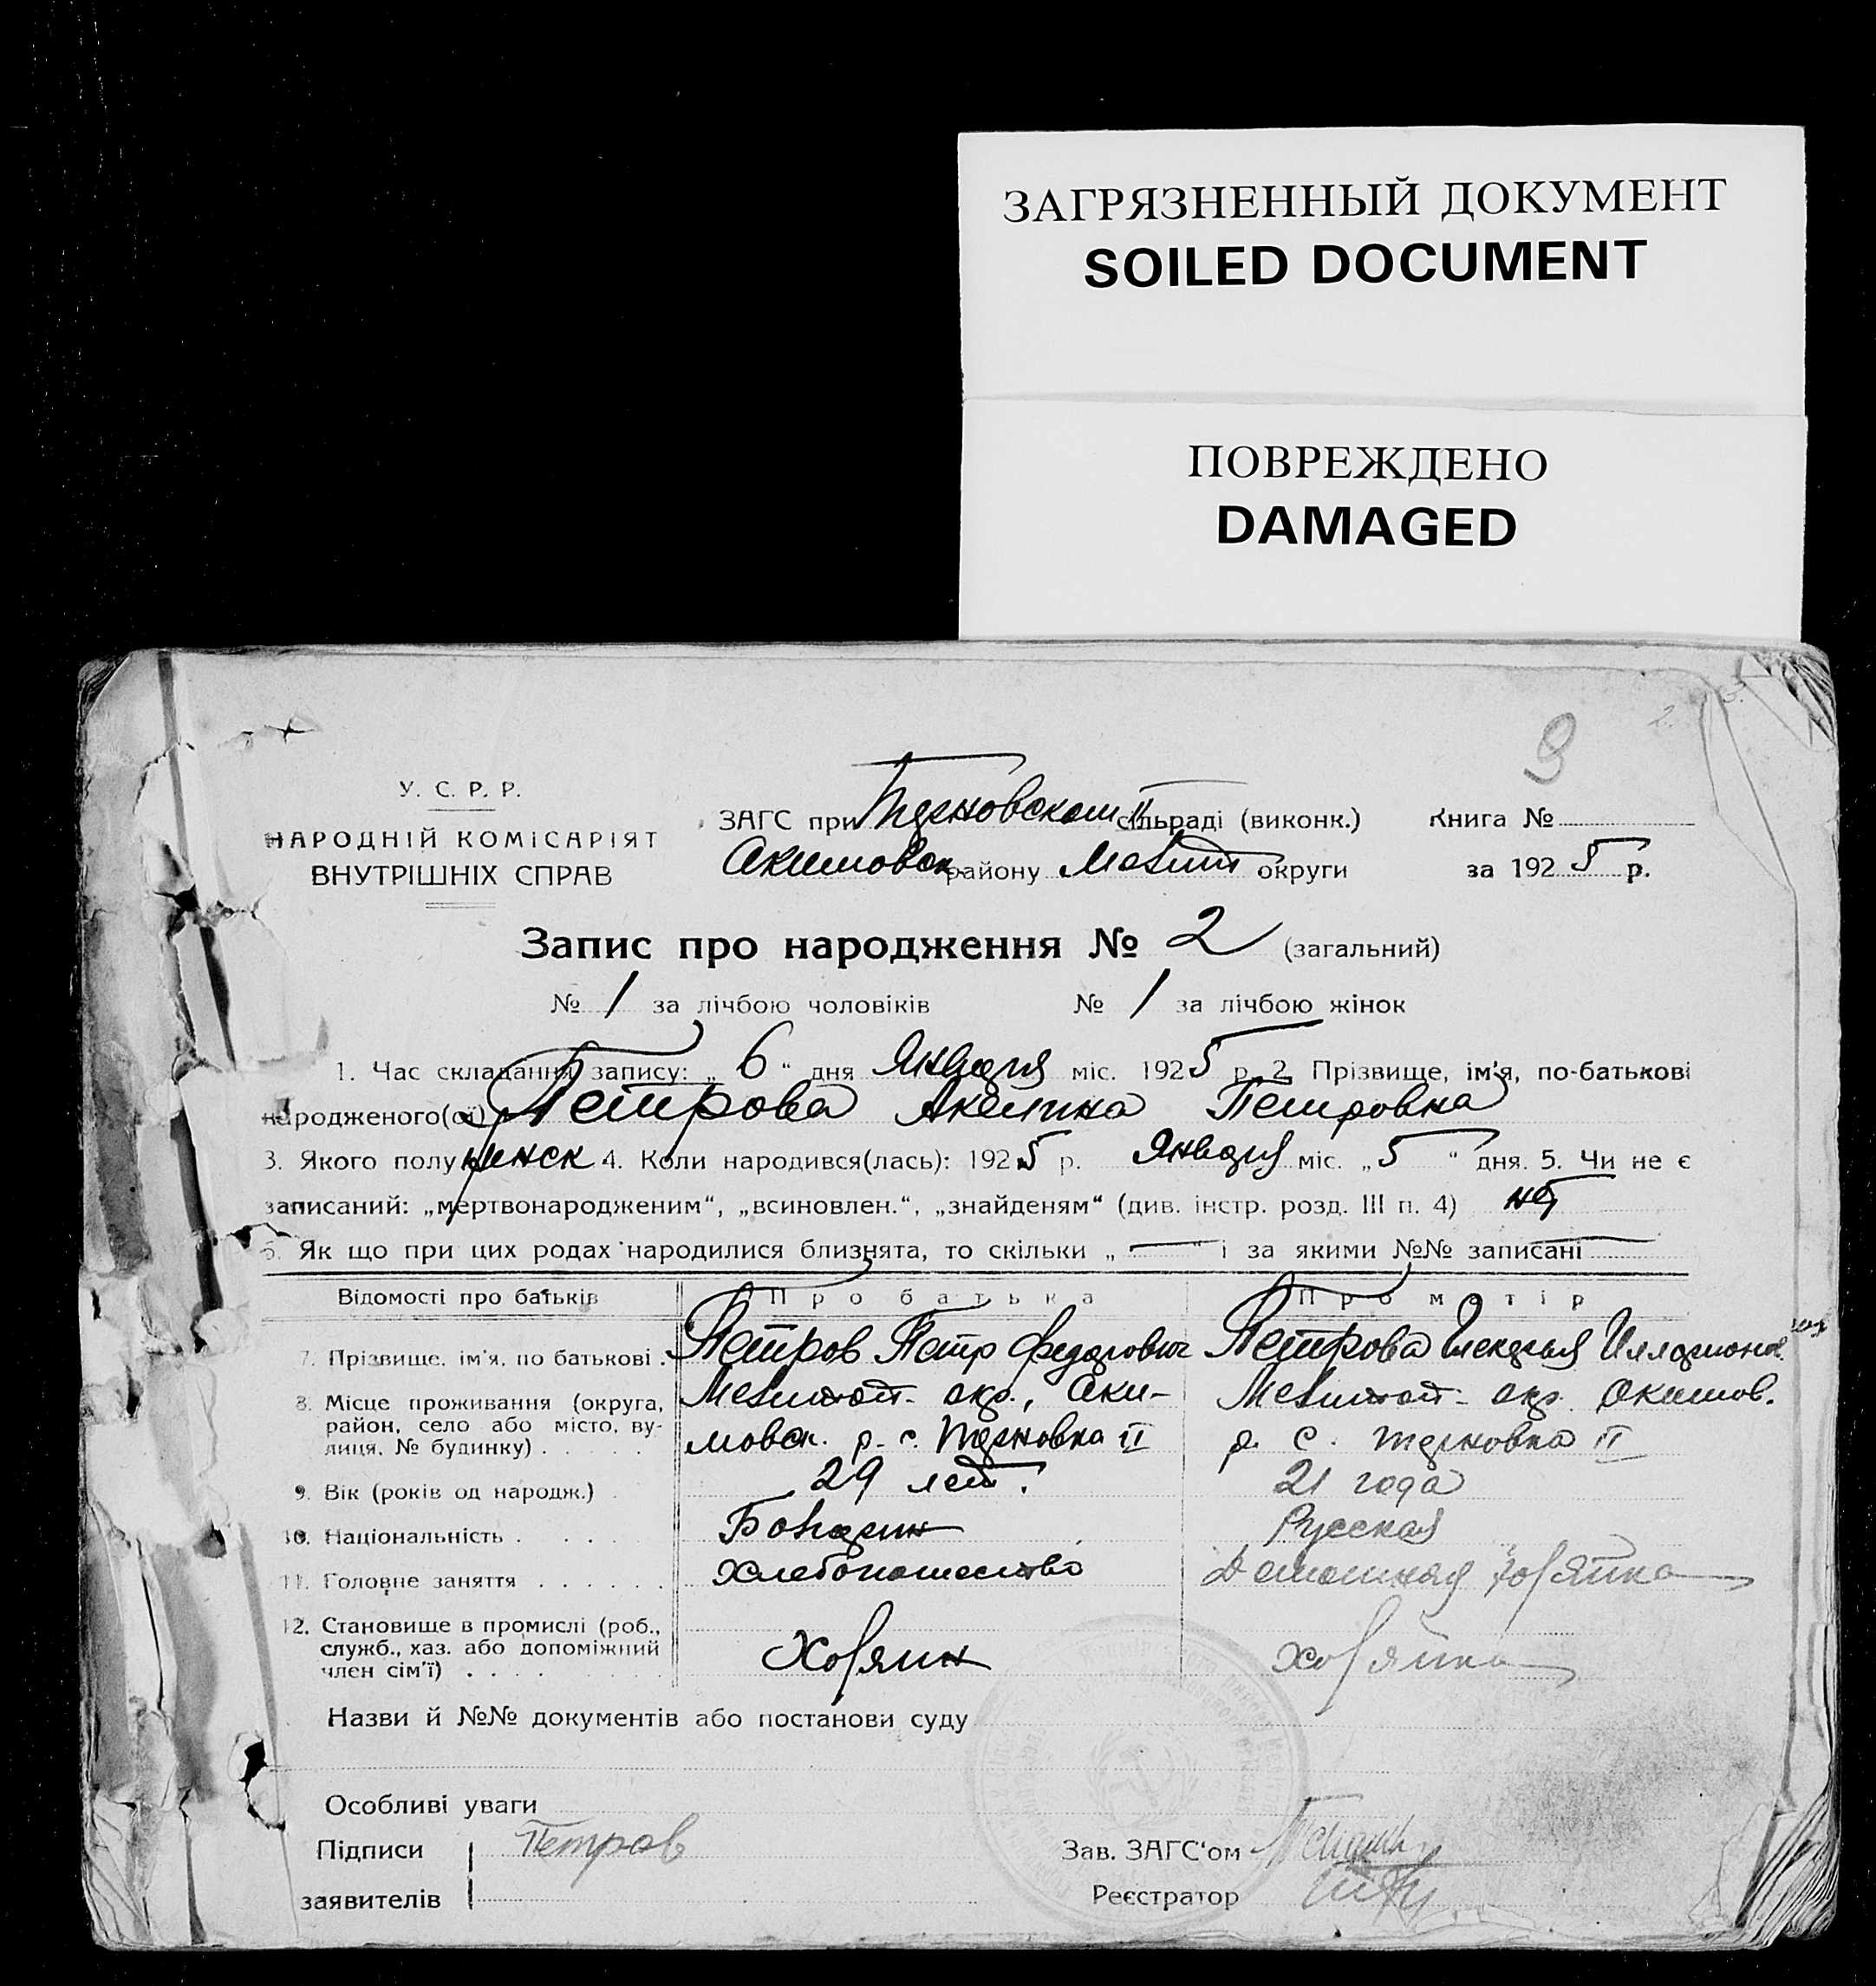 ЗАГРЯЗНЕННЫЙ ДОКУМЕНТ
SOILED DOCUMENT
ПОВРЕЖДЕНО
DAMAGED
2. 3.
9
У. С. Р. Р.
НАРОДНІЙ КОМІСАРІЯТ
ВНУТРІШНІХ СПРАВ
ЗАГС при Терновском II сільраді (виконк.) Книга №
Акимовск. району Мелит округи за 1925 р.
Запис про народження № 2 (загальний)
№ 1 за лічбою чоловіків № 1 за лічбою жінок
1. Час складання запису: „ 6 “ дня Января міс. 1925 р. 2. Прізвище, ім'я, по-батькові
народженого(ої) Петрова Акелина Петровна
3. Якого полу женск 4. Коли народився(лась): 1925 р. Января міс. „ 5 “ дня. 5. Чи не є
записаний: „мертвонародженим“, „всиновлен.“, „знайденям“ (див. інстр. розд. III п. 4) нет
6. Як що при цих родах народилися близнята, то скільки „ — “ і за якими №№ записані —
Відомості про батьків Про батька Про матір
7. Прізвище, ім'я, по батькові . Петров Петр Федорович Петрова Илларионов.
8. Місце проживання (округа, Мелитоп. окр., Аки- Мелитоп. окр. Акимов.
район, село або місто, ву-
лиця, № будинку) . . . . . мовск. р. с. Терновка II р. с. Терновка II
9. Вік (років од народж.) . 29 лет. 21 года
10. Національність . . . . . Болгарин Русская
11. Головне заняття . . . . . . Хлебопашество Домашная хозяйка
12. Становище в промислі (роб.,
служб., хаз. або допоміжний Хозяин хозяйка
член сім'ї) . . . . .
Назви й №№ документів або постанови суду
Особливі уваги
Підписи Петров Зав. ЗАГС'ом
заявителів Реєстратор